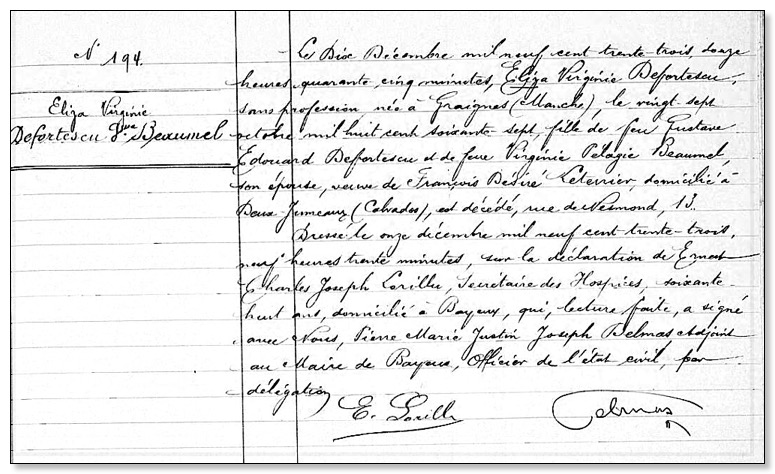 N° 194.
Eliza Virginie
Defortescu Vve Beaumel
Le Dix Décembre mil neuf cent trente-trois douze
heures quarante cinq minutes, Eliza Virginie Defortescu,
sans profession née à Graignes (Manche), le vingt sept
octobre mil huit cent soixante-sept, fille de feu Gustave
Edouard Defortescu et de feue Virginie Pélagie Beaumel,
son épouse, veuve de François Désiré Leterrier, domicilié à
Deux-Jumeaux (Calvados), est décédé, rue de Nesmond, 13.
Dressé le onze décembre mil neuf cent trente-trois,
neuf heures trente minutes, sur la déclaration de Ernest
Charles Joseph Lerillu, Secrétaire des Hospices, soixante-
huit ans, domicilié à Bayeux, qui, lecture faite, a signé
avec Nous, Pierre Marie Justin Joseph Delmas Adjoint
au Maire de Bayeux, Officier de l'état civil, par
délégation
Delmas